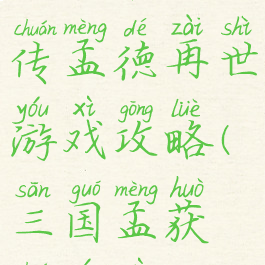 chuán mèng dé zài shì
传孟德再世
yóu xì gōng lüè
游戏攻略(
sān guó mèng huò
三国孟获